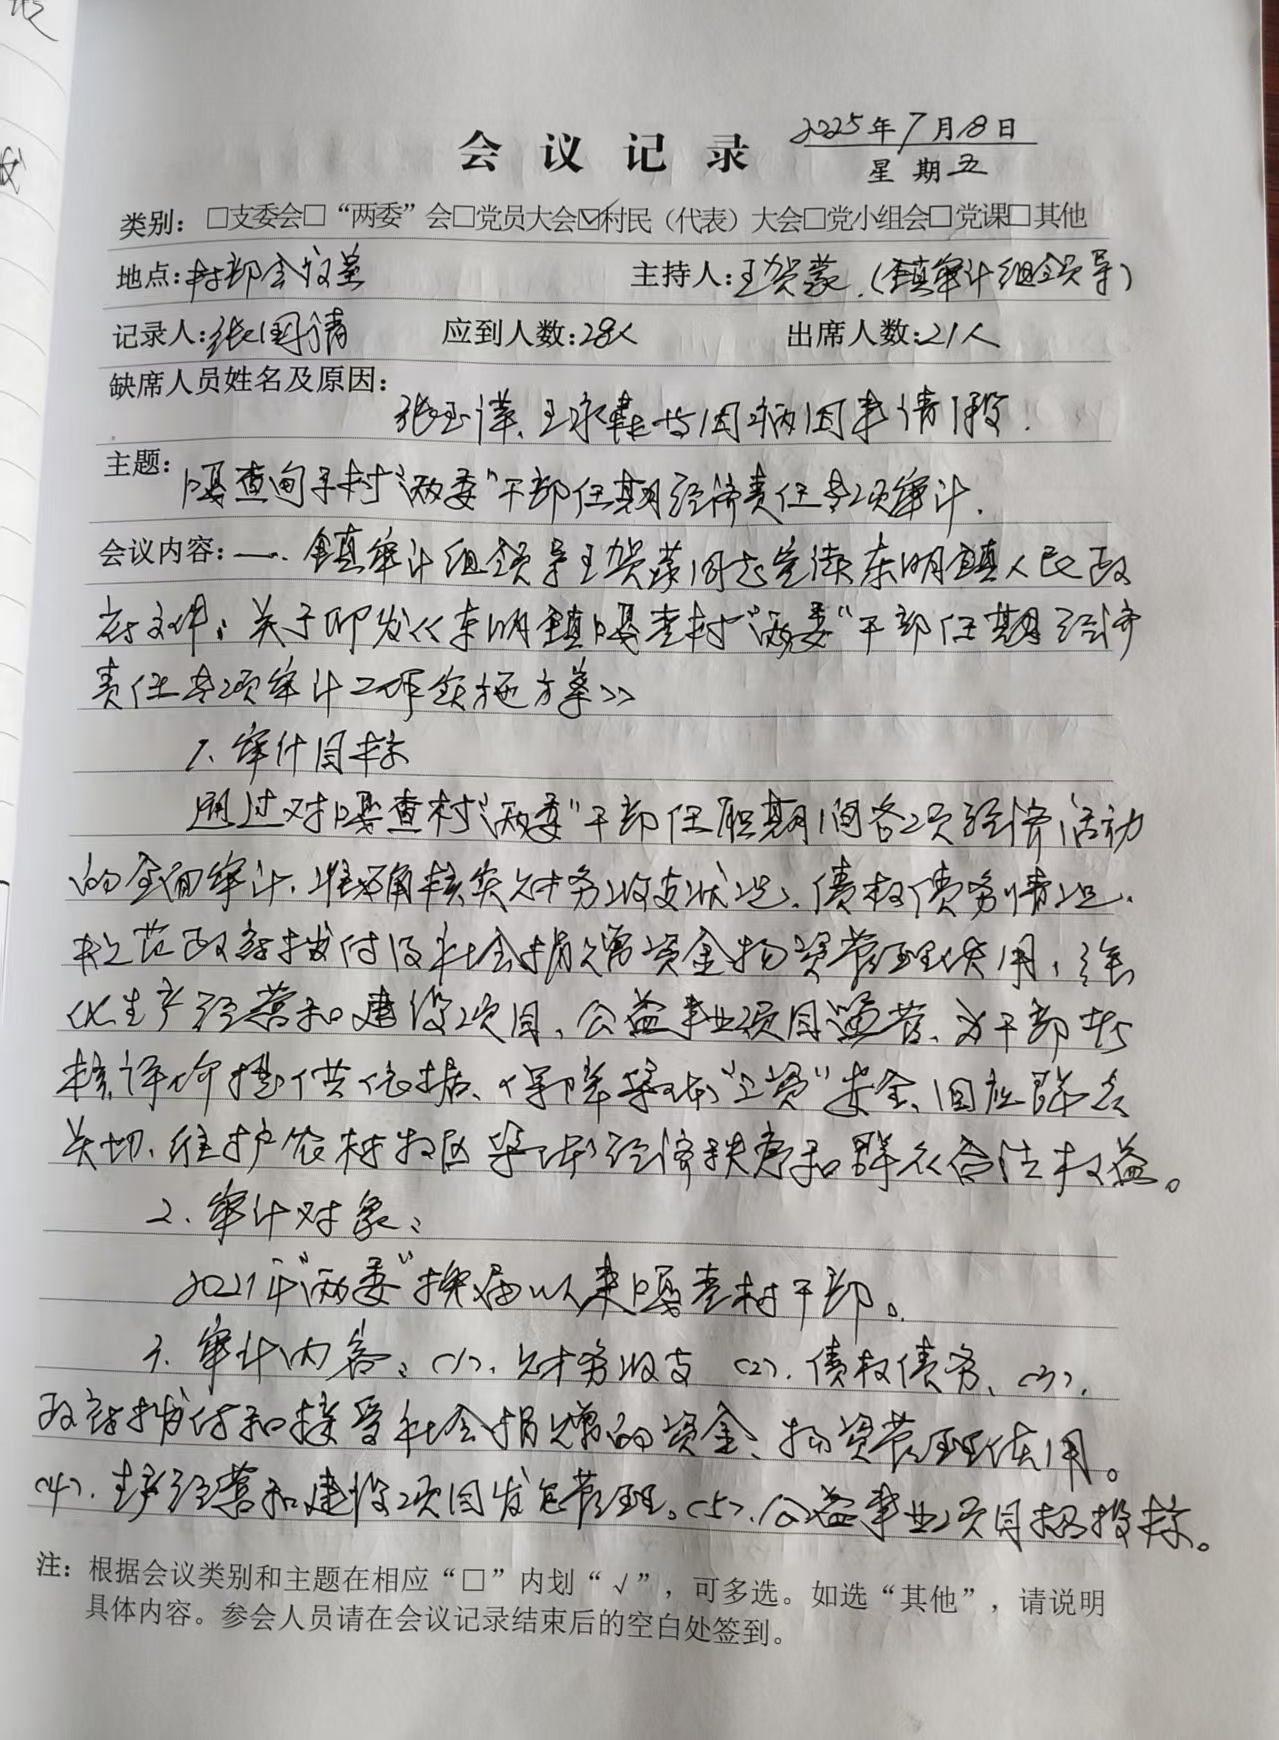 会议记录 2025年7月18日
星期五
类别：□支委会□“两委”会□党员大会☑村民（代表）大会□党小组会□党课□其他
地点：村部会议室 主持人：王贺蒙（镇审计组领导）
记录人：张国清 应到人数：28人 出席人数：21人
缺席人员姓名及原因：
张玉泽、王永 因病因事请假.
主题：嘎查甸子村“两委”干部任期经济责任专项审计.
会议内容：一、镇审计组领导王贺蒙同志宣读东明镇人民政
府文件：关于印发《东明镇嘎查村“两委”干部任期经济
责任专项审计工作实施方案》
1、审计目标
通过对嘎查村“两委”干部任职期间各项经济活动
的全面审计、准确核实财务收支状况、债权债务情况、
规范政府拨付及社会捐赠资金物资管理使用，深
化生产经营和建设项目、公益事业项目运营、为干部考
核评价提供依据、保障集体“三资”安全、回应群众
关切、维护农村牧区集体经济秩序和群众合法权益。
2、审计对象：
2021年“两委”换届以来嘎查村干部。
3、审计内容：（1）、财务收支（2）、债权债务、（3）、
政府拨付和接受社会捐赠的资金、物资管理使用。
（4）、生产经营和建设项目发包管理。（5）、公益事业项目招投标。
注：根据会议类别和主题在相应“□”内划“√”，可多选。如选“其他”，请说明
具体内容。参会人员请在会议记录结束后的空白处签到。